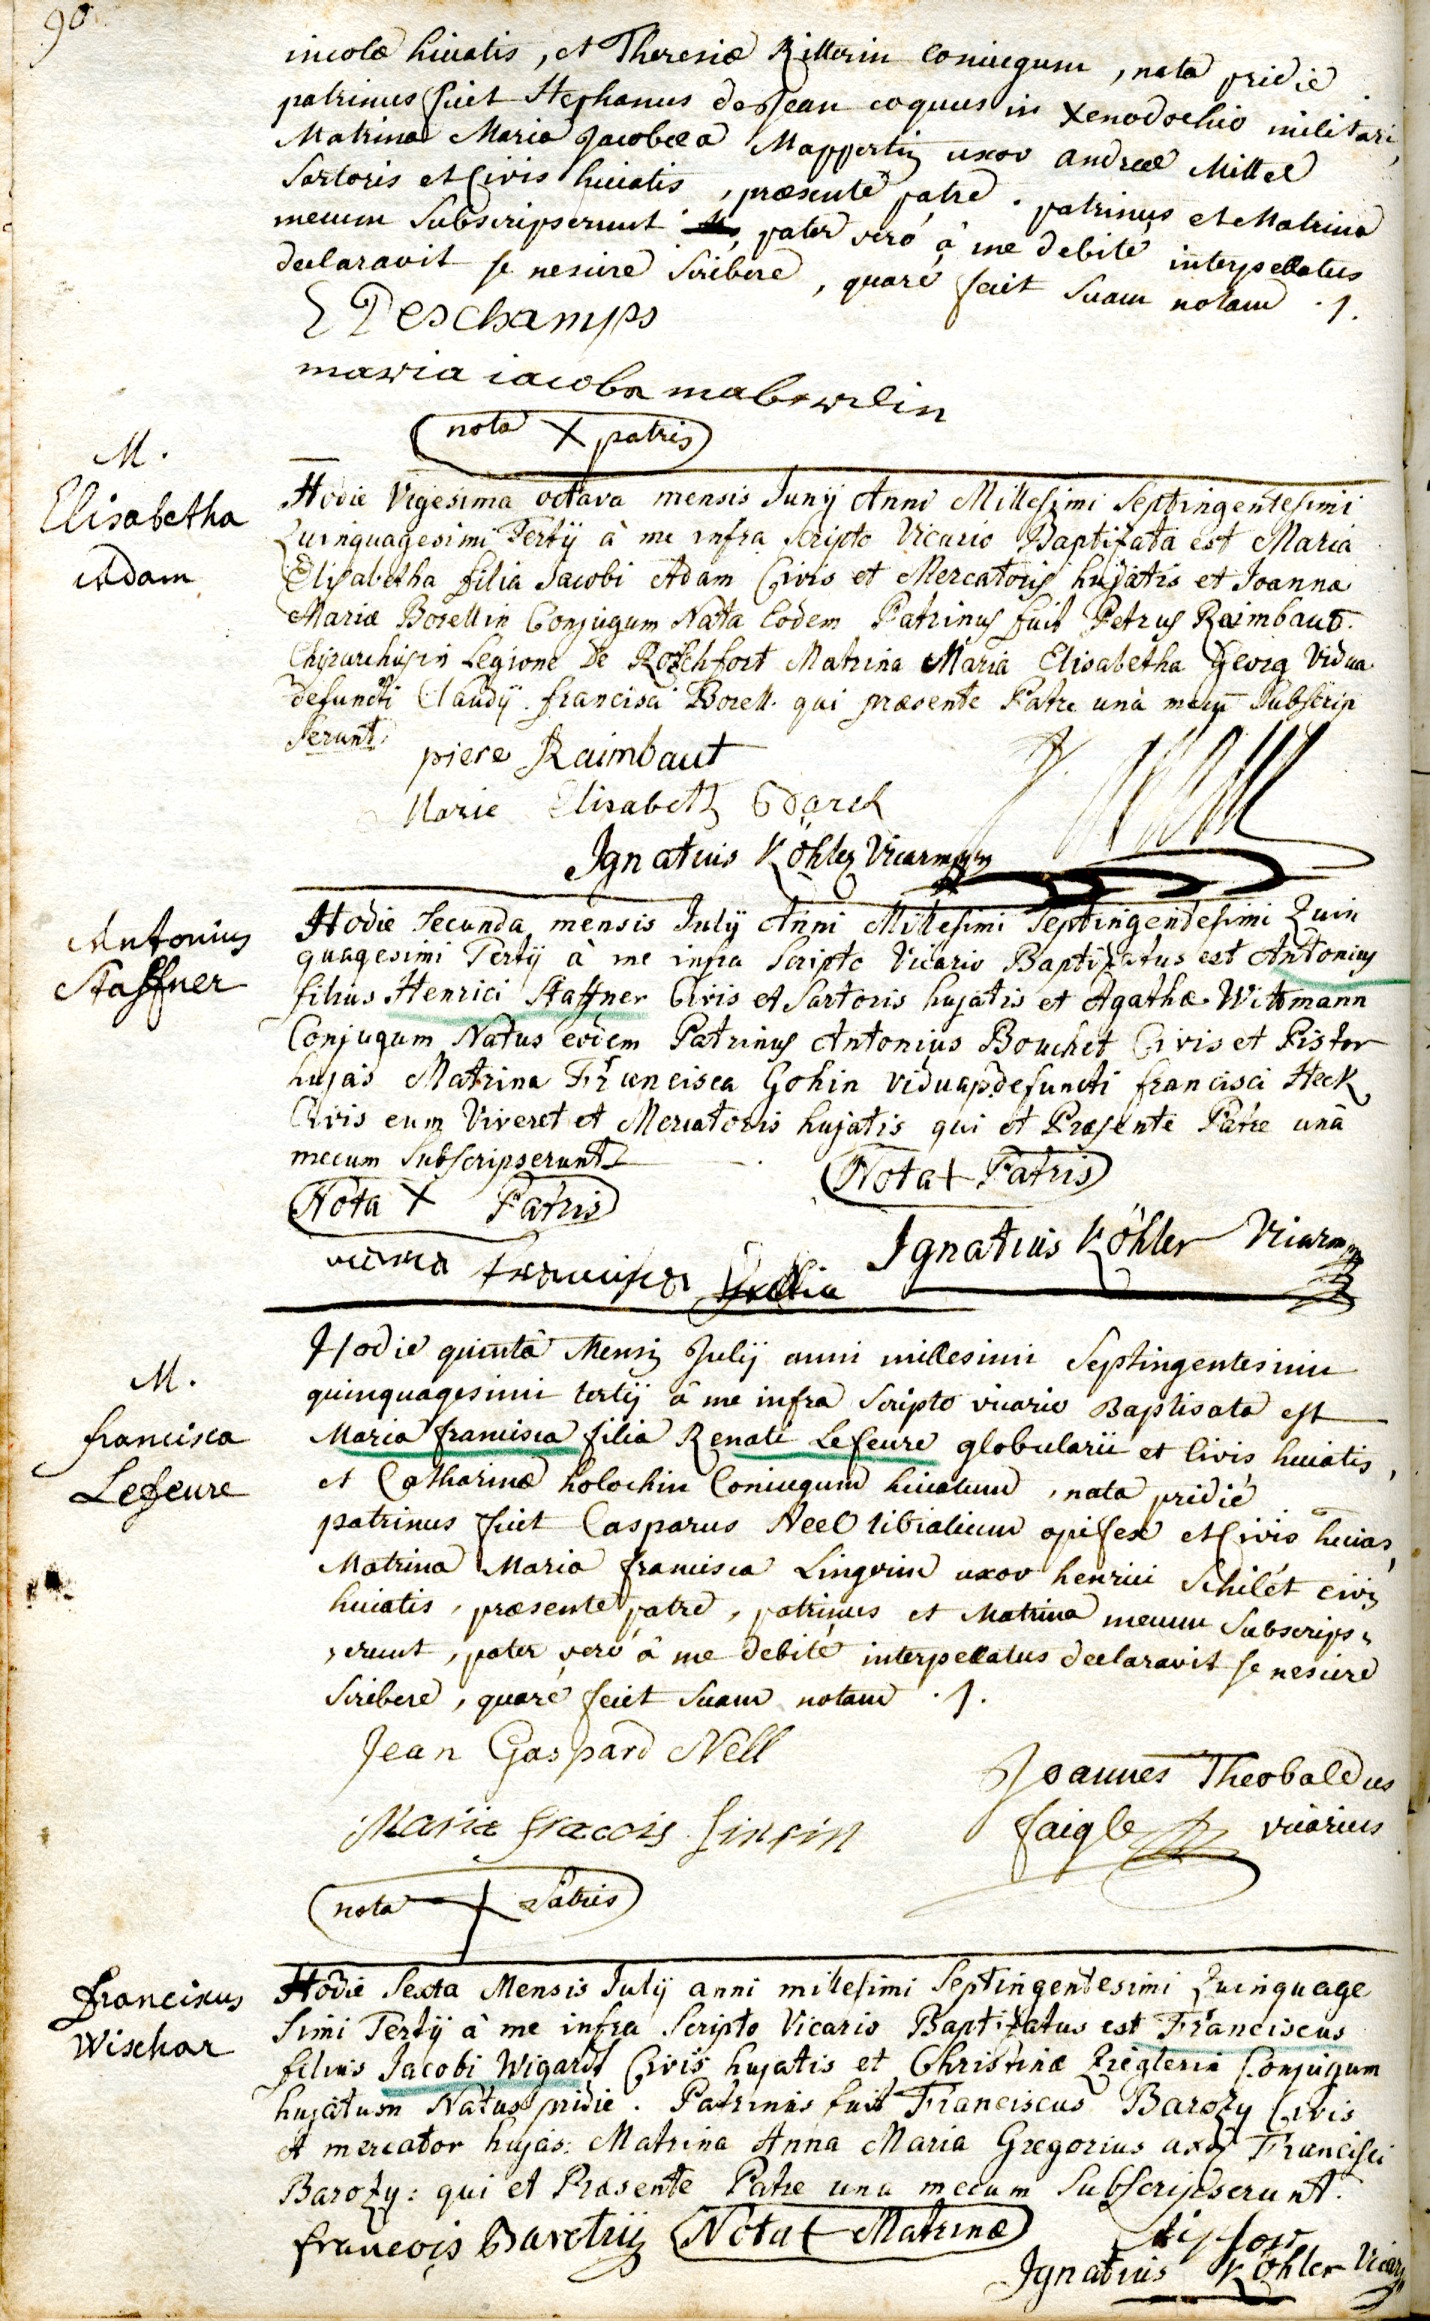 90
incolæ huiatis, et Theresiæ Ritterin Coniugum, nata pridie
patrinus fuit Stephanus desJean coquus in Xenodochio militari,
Matrina Maria Jacobea Mappertin uxor andreæ Mittel
Sartoris et Civis huiatis, præsente patre. patrinus et Matrina
mecum Subscripserunt pater verò à me debitè interpellatus
declaravit se nescire Scribere, quarè fecit Suam notam ·/.
Deschamps
maria iacoba
nota X patris
M.
Elisabetha
Adam
Hodie Vigesima octava mensis Junij Anni Millesimi Septingentesimi
Quinquagesimi Tertij à me infra Scripto Vicario Baptizata est Maria
Elisabetha filia Jacobi Adam Civis et Mercatoris hujatis et Joanna
Mariæ Borellin Conjugum Nata Eodem Patrinus fuit Petrus Raimbaut.
Chyrurchus in Legione De Rochfort Matrina Maria Elisabetha Georg Vidua
defuncti Claudij francisci Borell. qui præsente Patre unà mecum Subscrip
serunt.
piere Raimbaut
Marie Elisabeth
Ignatius Köhler Vicarius
Antonius
Staffner
Hodie Secunda mensis Julij Anni Millesimi Septingentesimi Quin
quagesimi Tertij à me infra Scripto Vicario Baptizatus est Antonius
filius Henrici Staffner Civis et Sartoris hujatis et Agathæ Wittmann
Conjugum Natus eodem Patrinus Antonius Bouchet Civis et Pistor
hujas Matrina Francisca Gohin vidua defuncti francisci Heck
Civis cum Viveret et Mercatoris hujatis qui et Præsente Patre unà
mecum Subscripserunt
Nota + Patris
Nota X Patris
Ignatius Köhler
maria francisca
M.
francisca
Lefeure
Hodie quinta Mensis Julij anni millesimi Septingentesimi
quinquagesimi tertij à me infra Scripto vicario Baptisata est
Maria francisca filia Renati Lefeure globularii et Civis huiatis,
et Catharinæ holochin Coniugum huiatum, nata pridiè
patrinus fuit Casparus Neel tibialium opifex et Civis huias,
Matrina Maria francisca Lingvin uxor henrici Schilét civis
huiatis, præsente patre, patrinus et Matrina mecum Subscrips
erunt, pater verò à me debitè interpellatus declaravit se nescire
Scribere, quarè fecit Suam notam ·/.
Jean Gaspard Nell
Joannes Theobaldus
Maria
faigle vicarius
nota + Patris
franciscus
Wischar
Hodie Sexta Mensis Julij anni millesimi Septingentesimi Quinquage
simi Tertij à me infra Scripto Vicario Baptizatus est Franciscus
filius Jacobi Wigard Civis hujatis et Christinæ Zieglerin Conjugum
hujatum Natus pridie. Patrinus fuit Franciscus Barozy Civis
et mercator hujas: Matrina Anna Maria Gregorius uxor Francisci
Barozy: qui et Præsente Patre una mecum Subscripserunt.
francois Nota + Matrinæ
Ignatius Köhler